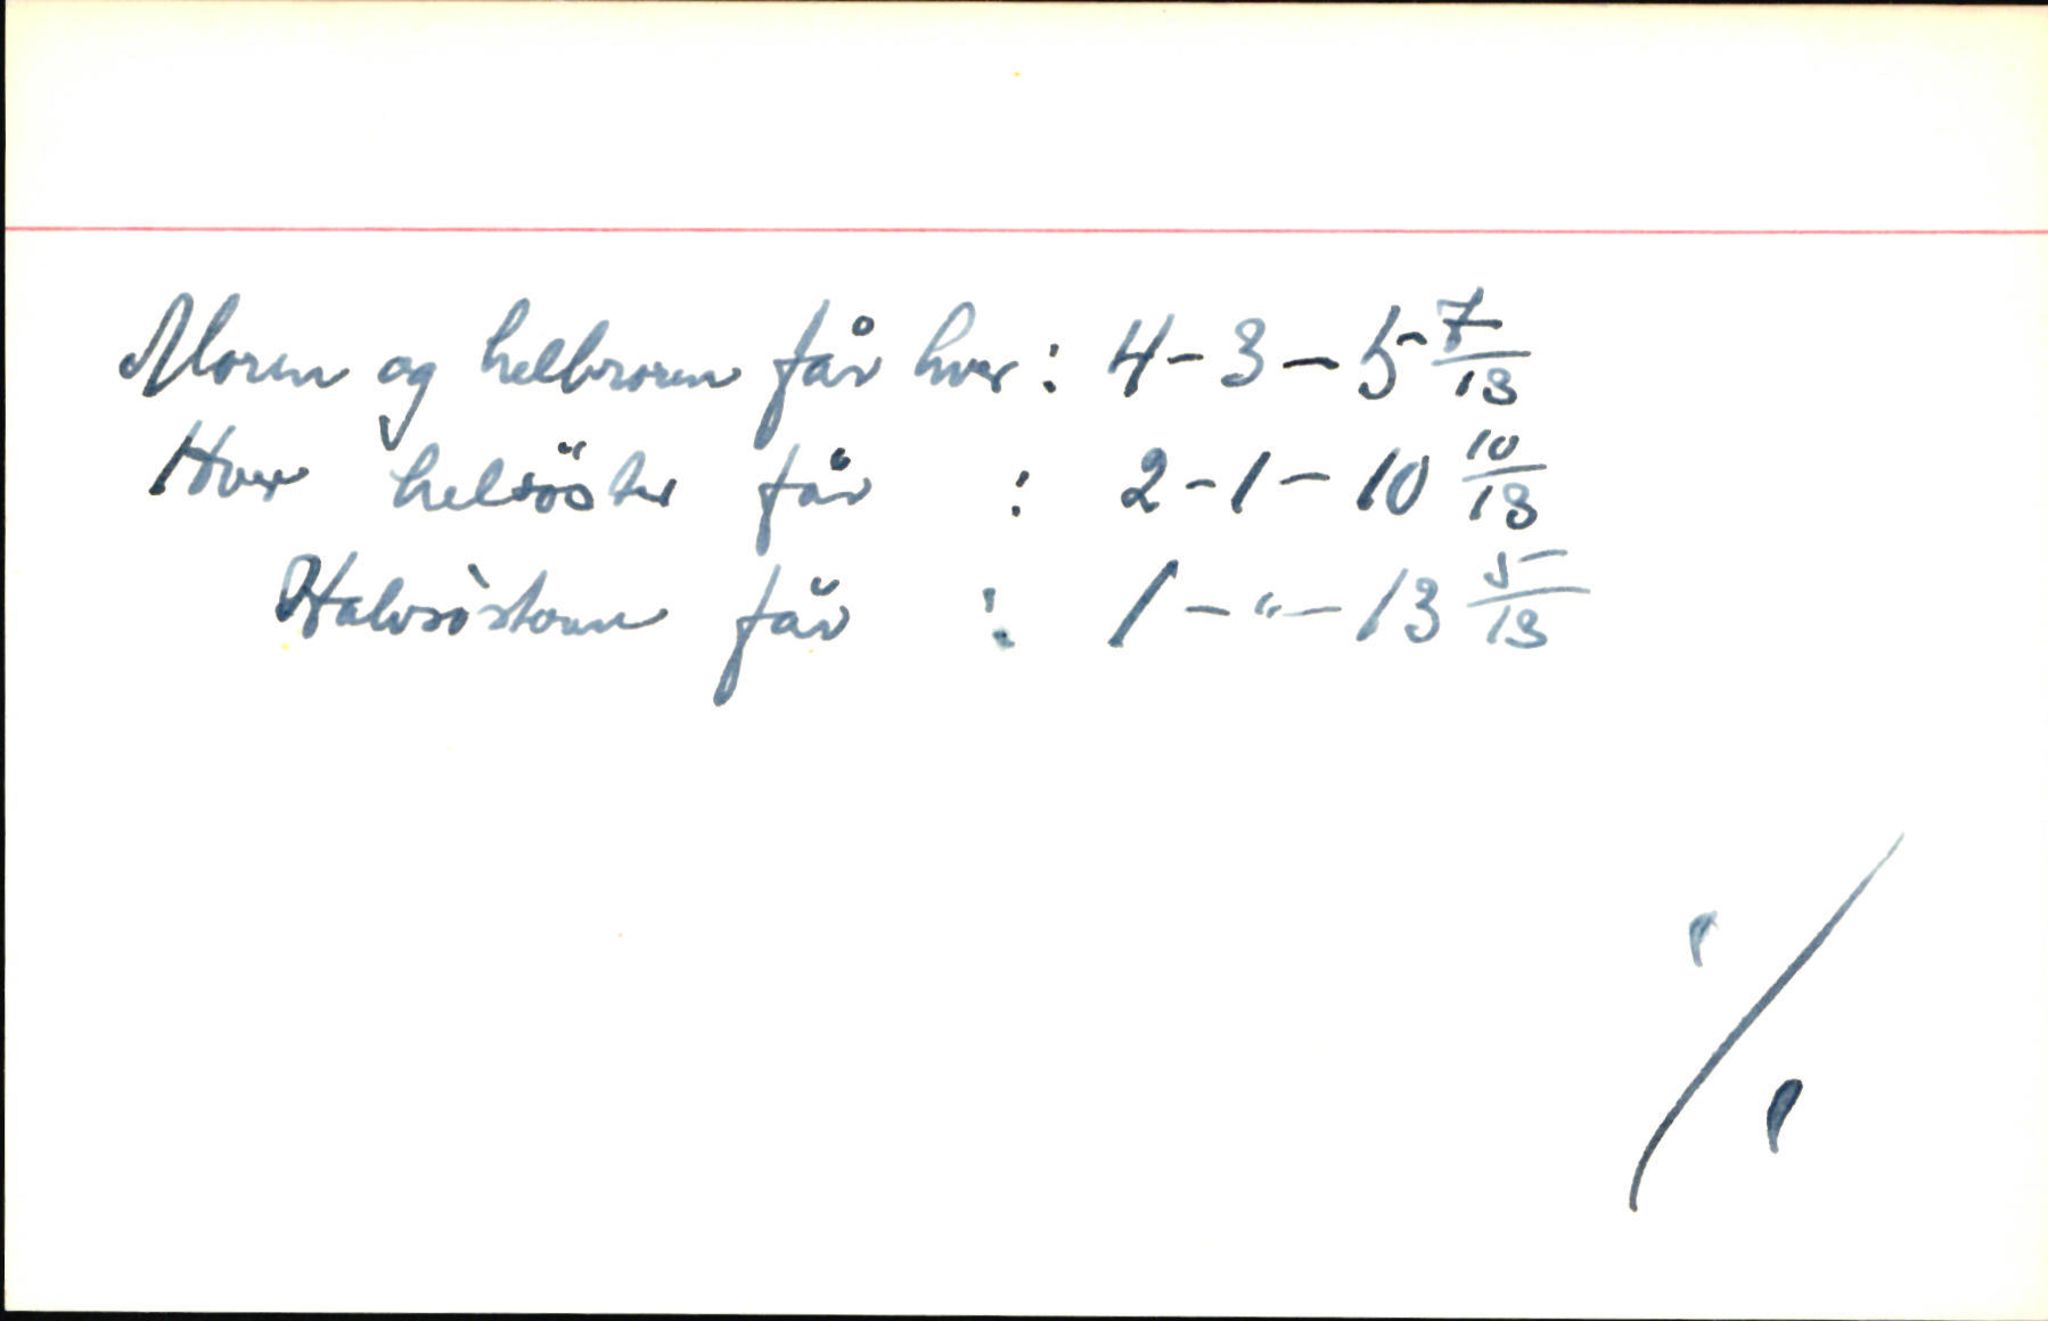 Moren og helbroren får hver: 4-3-5 7/13
Hver helsöster får : 2-1-10 10/13
Halvsösteren får : 1-"-13 5/13
·/·